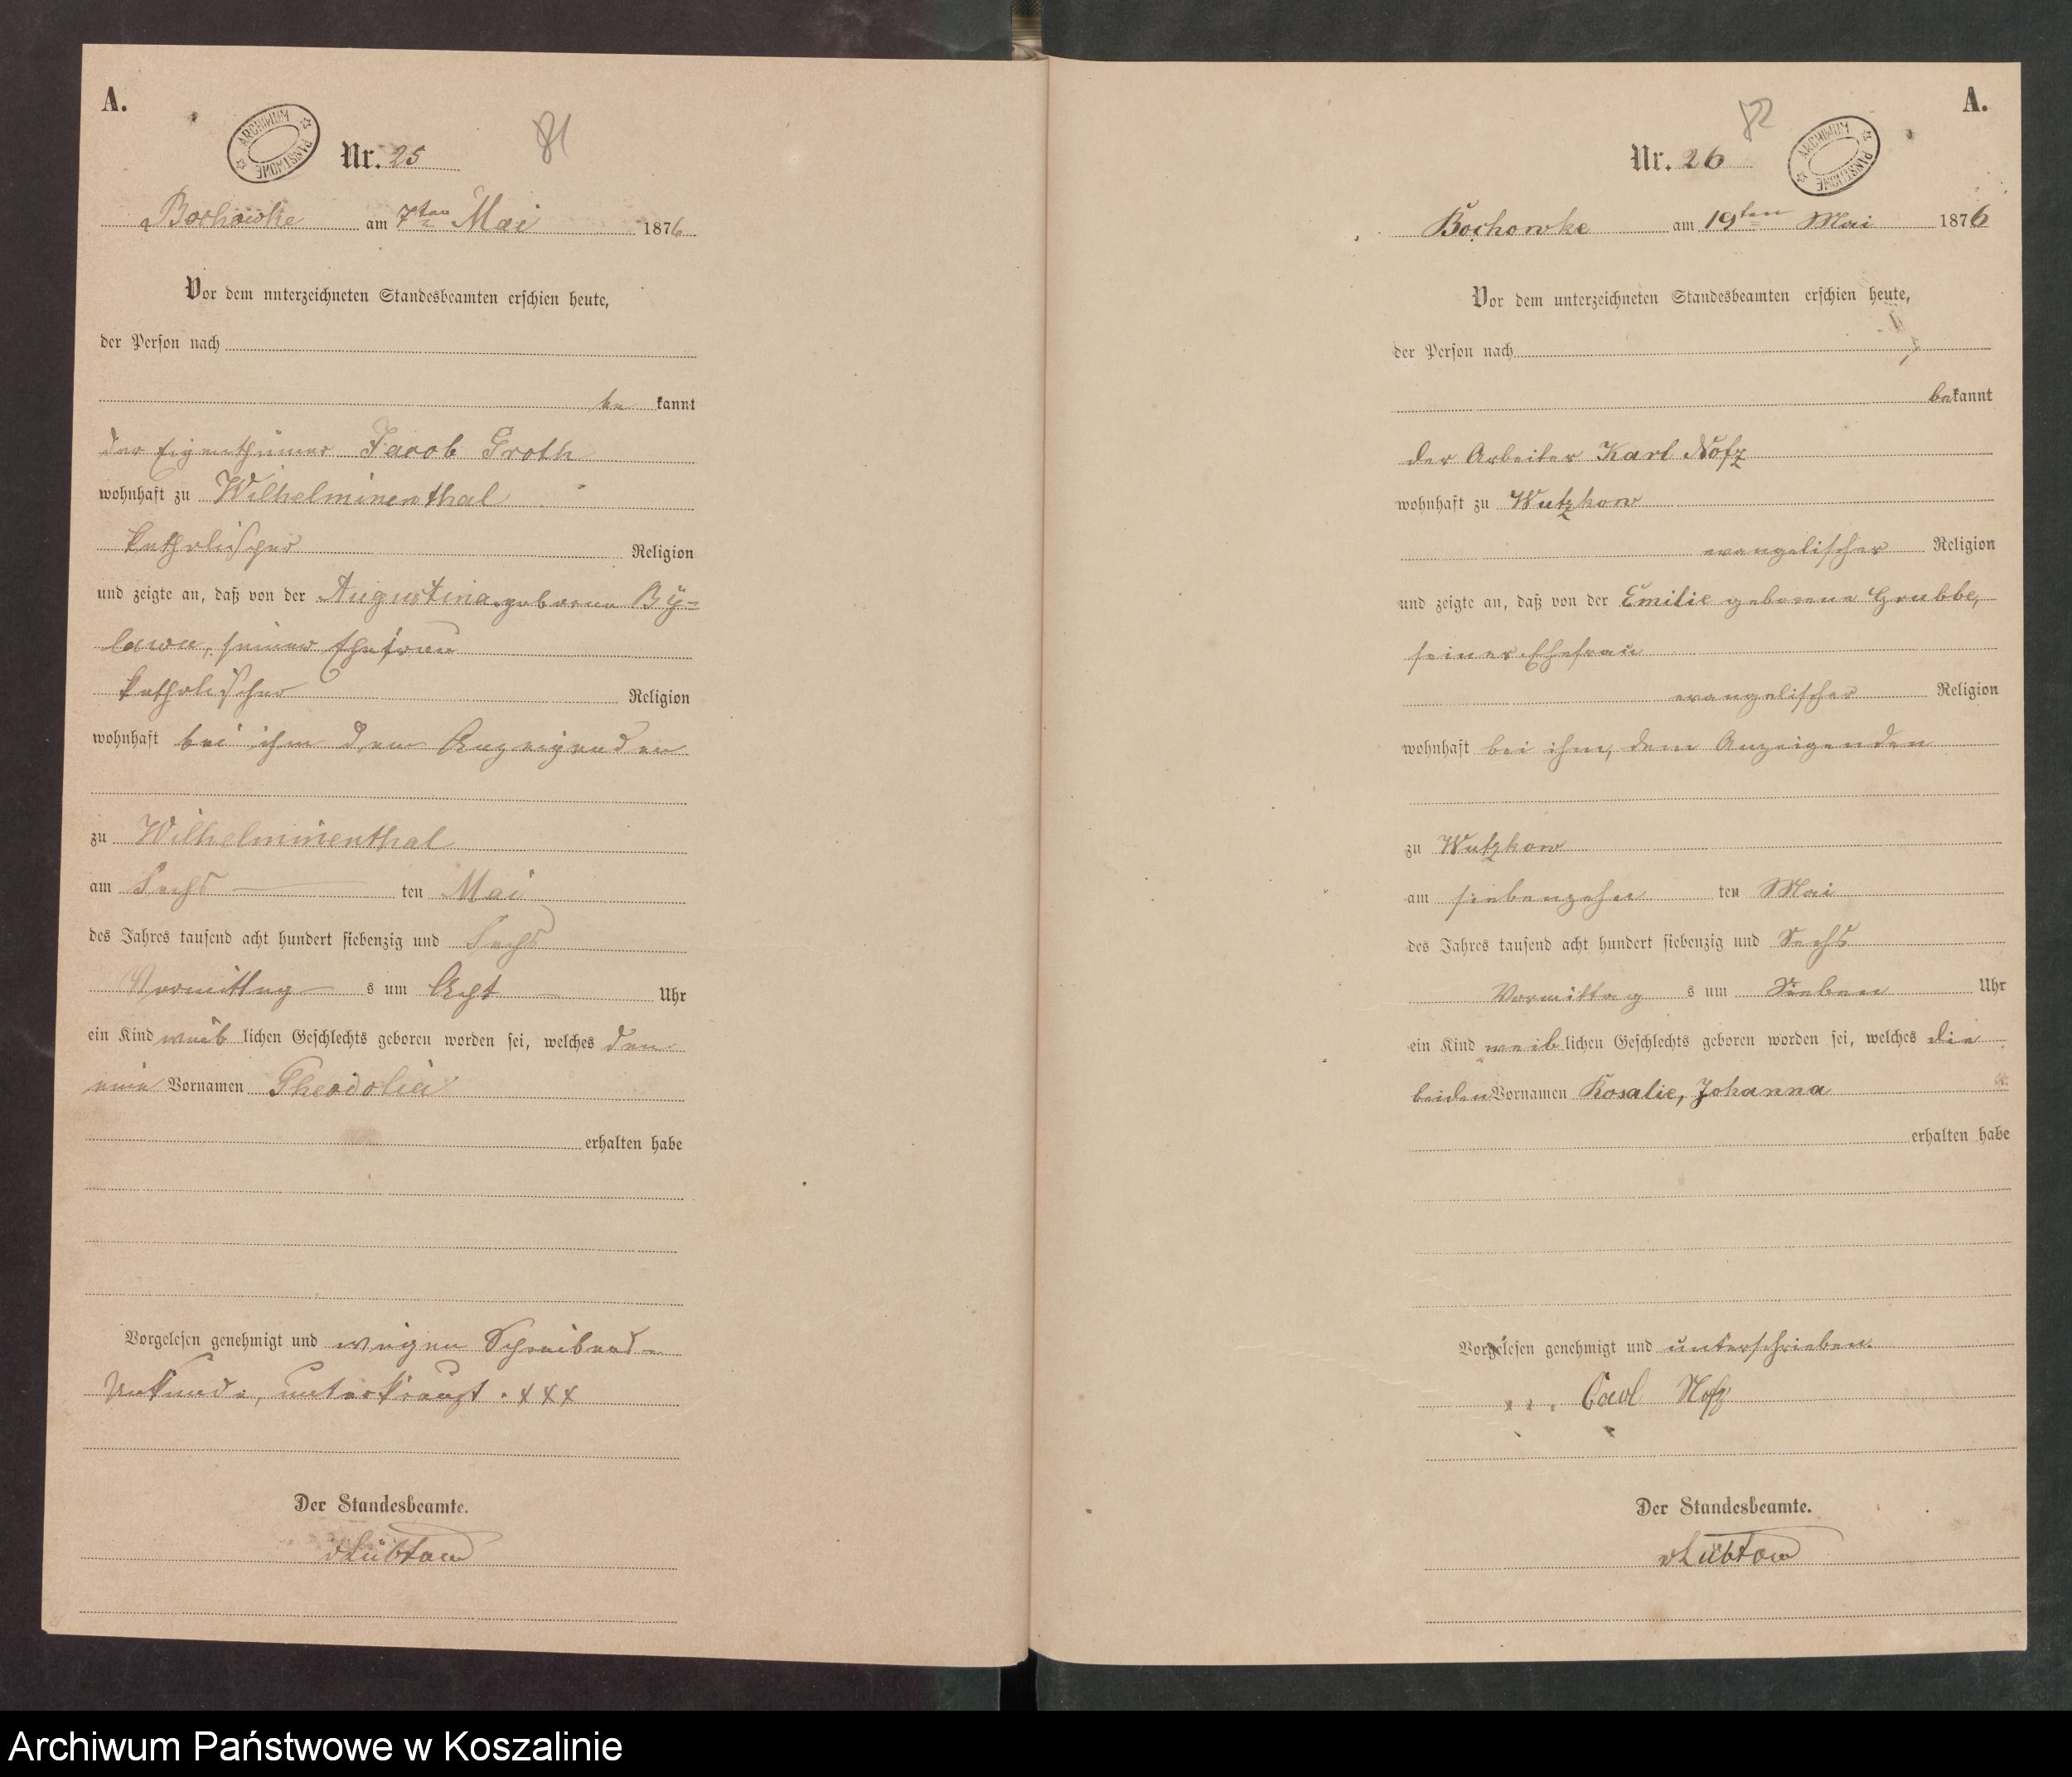 A.
ARCHIWUM PAŃSTWOWE
Nr. 25
81
Bochowke am 7ten Mai 1876
Vor dem unterzeichneten Standesbeamten erschien heute,
der Person nach
be kannt
der Eigenthümer Jacob Groth
wohnhaft zu Wilhelminenthal
katholischer Religion
und zeigte an, daß von der Augustina geborene By=
lawa, seiner Ehefrau
katholischer Religion
wohnhaft bei ihm dem Anzeigenden
zu Wilhelminenthal
am Sechs ten Mai
des Jahres tausend acht hundert siebenzig und Sechs
Vormittag s um Acht Uhr
ein Kind weib lichen Geschlechts geboren worden sei, welches den
einen Vornamen
erhalten habe
Vorgelesen genehmigt und wegen Schreibens=
Unkunde, unterkreuzt. xxx
Der Standesbeamte.
vLübtow
A.
82
Nr. 26
ARCHIWUM PAŃSTWOWE
Bochowke am 19ten Mai 1876
Vor dem unterzeichneten Standesbeamten erschien heute,
der Person nach
bekannt
der Arbeiter Karl Nofz
wohnhaft zu Wutzkow
evangelischer Religion
und zeigte an, daß von der Emilie geborene Grubbe,
seiner Ehefrau
evangelischer Religion
wohnhaft bei ihm, dem Anzeigenden
zu Wutzkow
am siebenzehn ten Mai
des Jahres tausend acht hundert siebenzig und Sechs
Vormittag s um Sieben Uhr
ein Kind weiblichen Geschlechts geboren worden sei, welches die
beiden Vornamen Rosalie, Johanna
erhalten habe
Vorgelesen genehmigt und unterschrieben.
Carl Nofz
Der Standesbeamte.
vLübtow
Archiwum Państwowe w Koszalinie